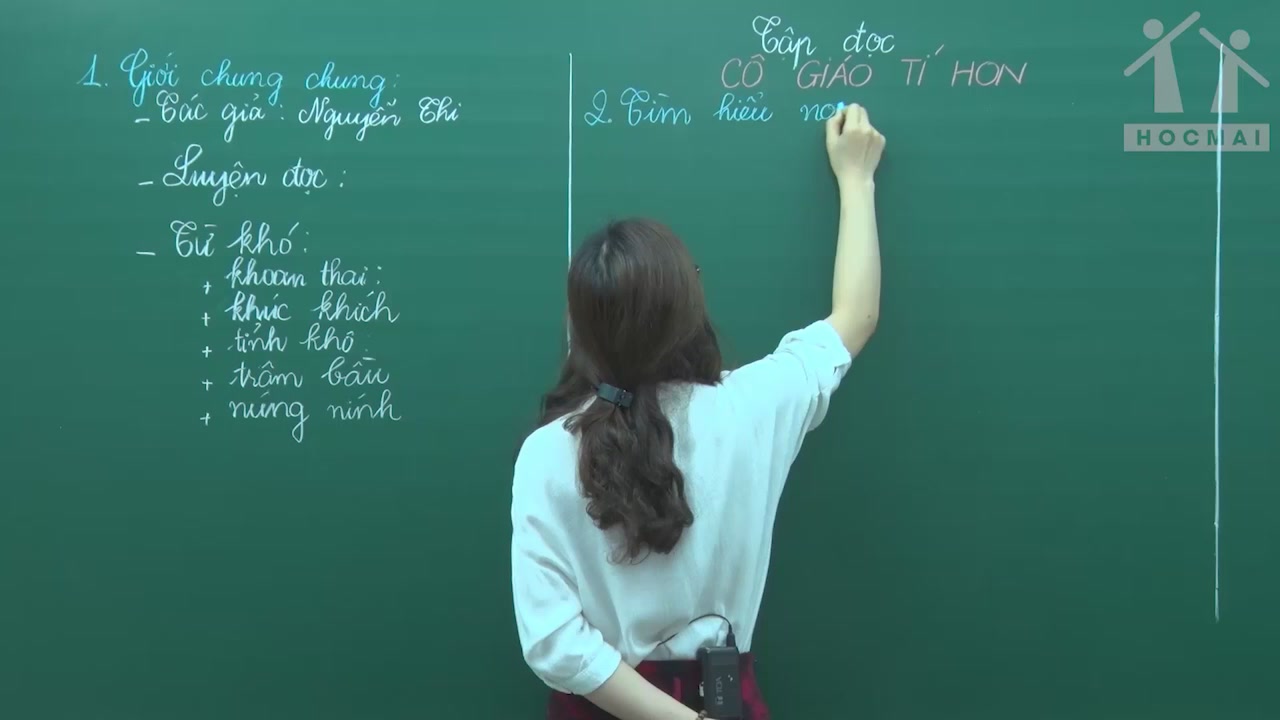 Tập đọc
CÔ GIÁO TÍ HON
1. Giới chung chung:
- Tác giả: Nguyễn Thi
- Luyện đọc:
- Từ khó:
+ khoan thai:
+ khúc khích
+ tỉnh khô:
+ trâm bầu
+ núng nính
2. Tìm hiểu
HOCMAI